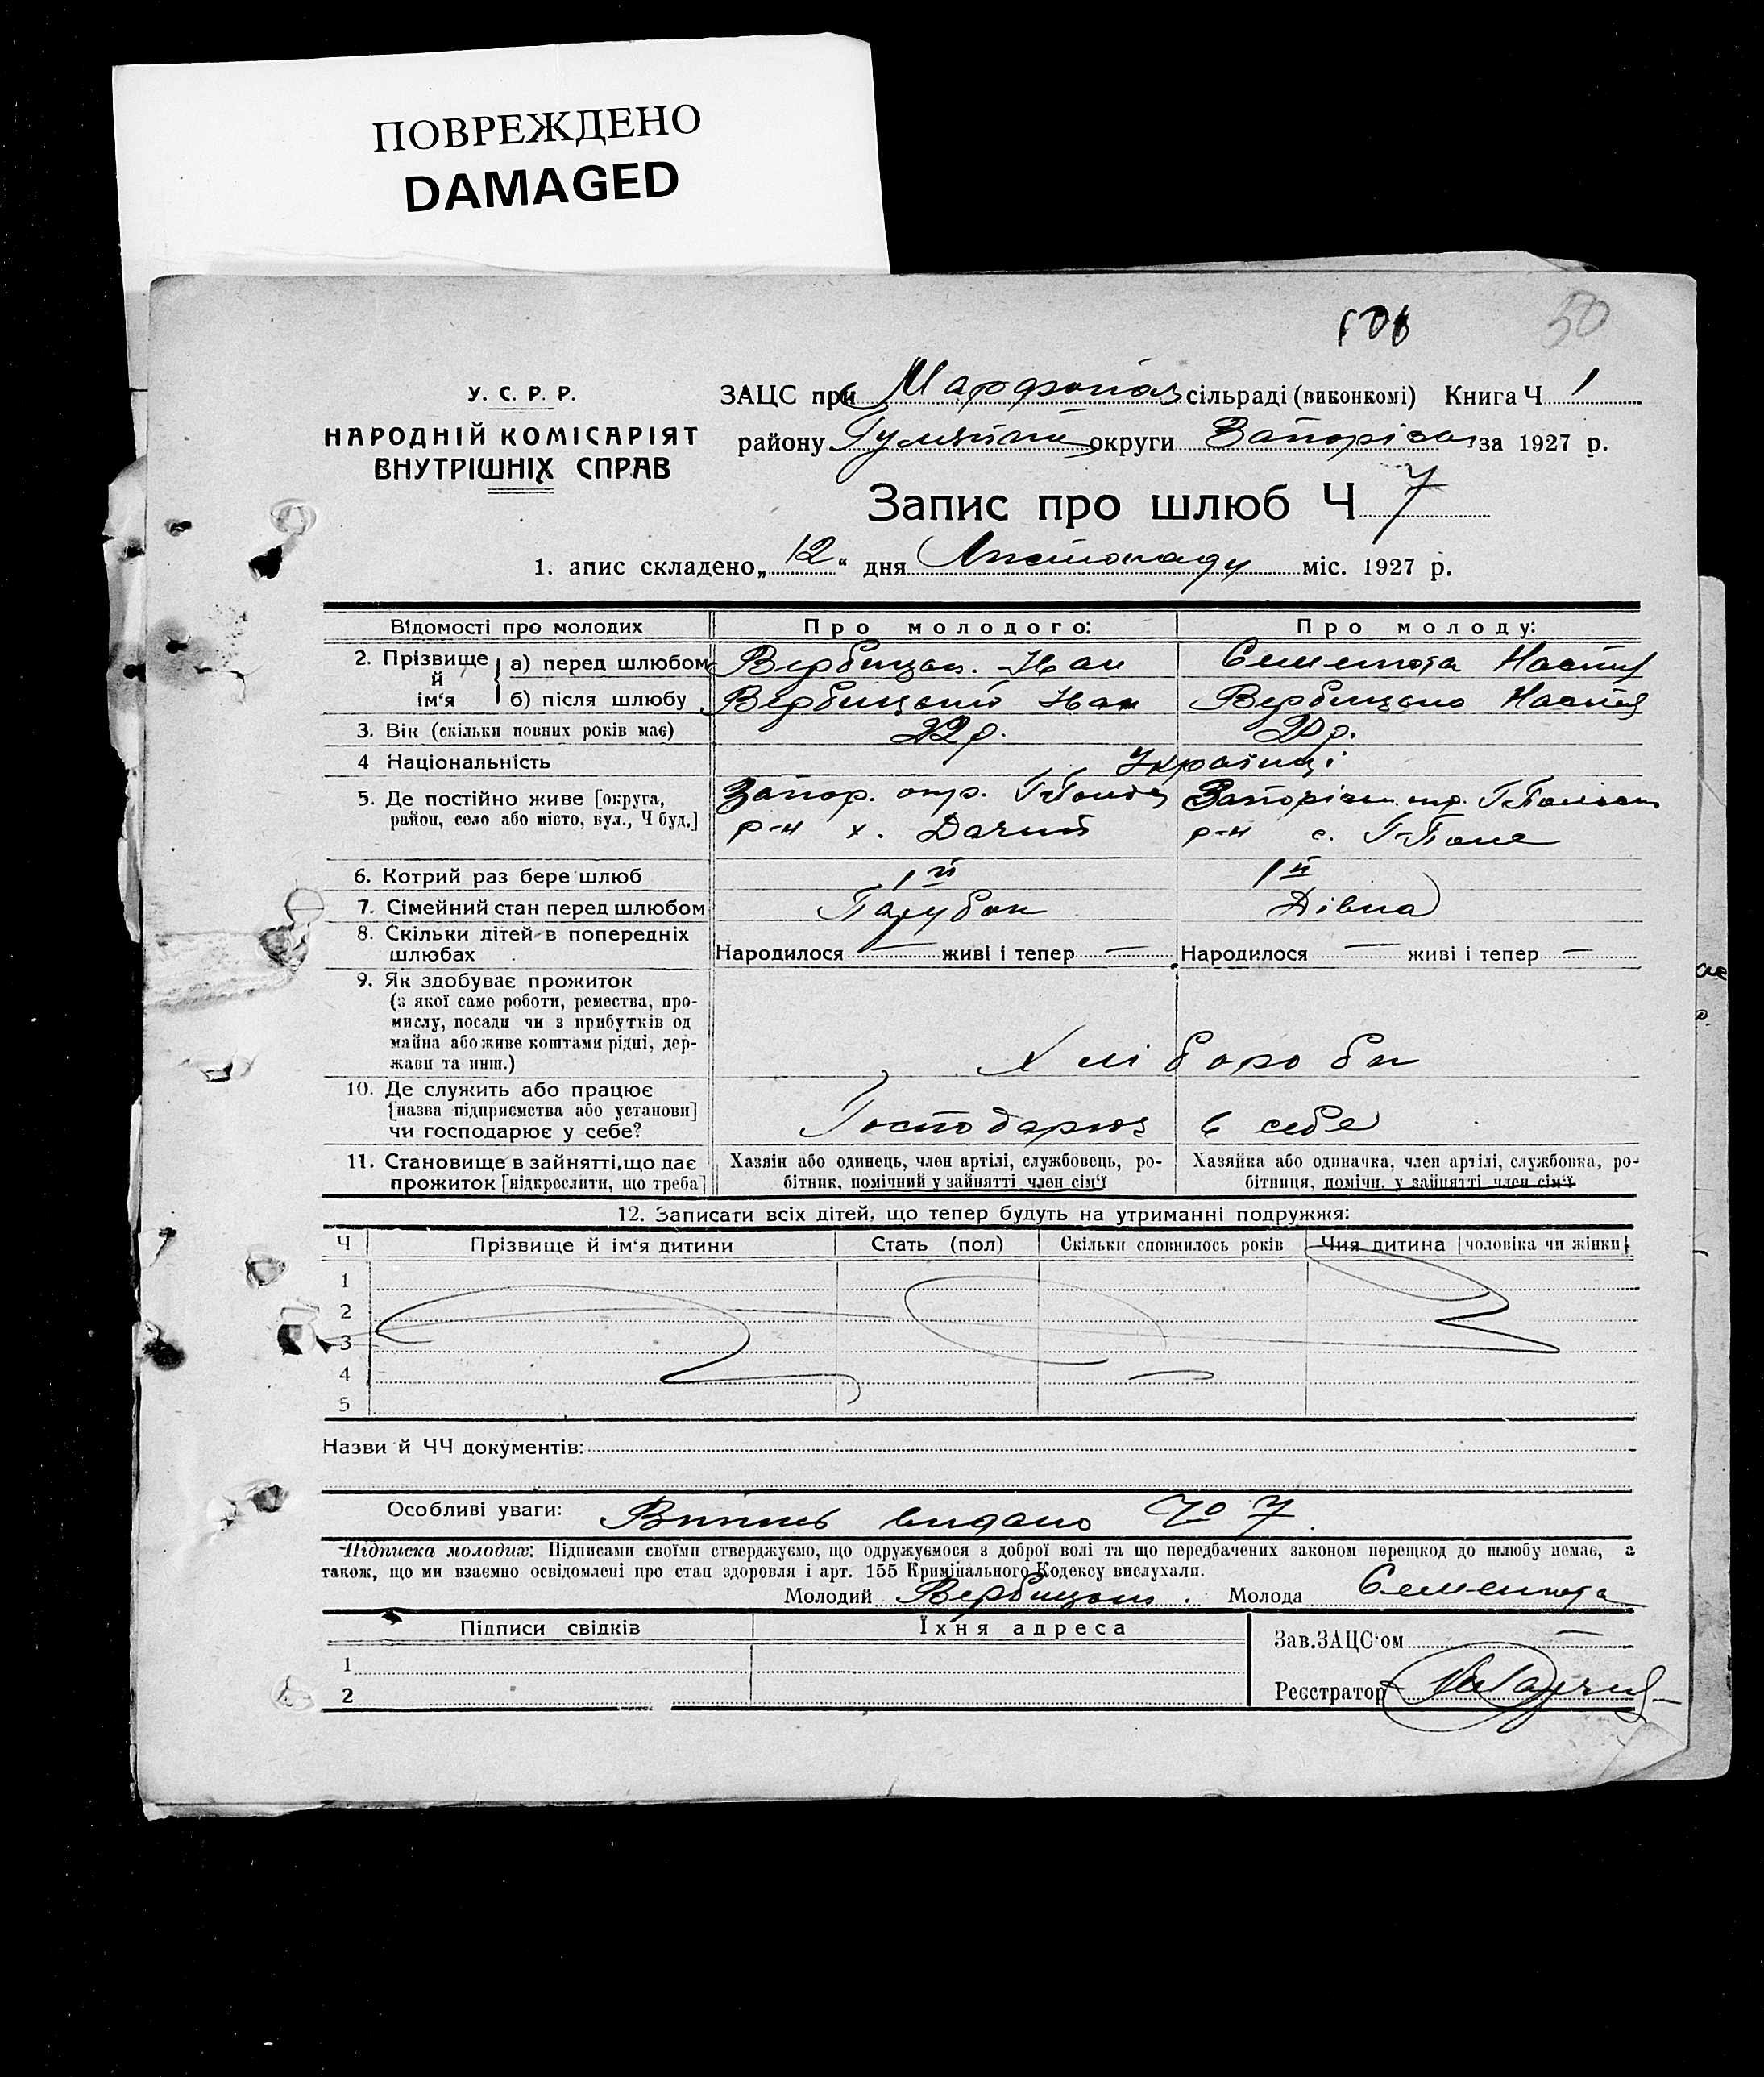 ПОВРЕЖДЕНО
DAMAGED
50
У. С. Р. Р.
НАРОДНІЙ КОМІСАРІЯТ
ВНУТРІШНІХ СПРАВ
ЗАЦС при сільраді (виконкомі) Книга Ч 1
району округи за 1927 р.
Запис про шлюб Ч 7
1. апис складено „12“ дня Листопаду міс. 1927 р.
Відомості про молодих Про молодого: Про молоду:
2. Прізвище й ім‘я а) перед шлюбом Вербицьк. Иван Семенюта Настя
б) після шлюбу Вербицький Иван Вербицько Настя
3. Вік (скільки повних років має) 22 р. 20 р.
4 Національність Українці
5. Де постійно живе [округа, район, село або місто, вул., Ч буд.]
Запор. окр.
р-н х. Дачний
р-н с. Г-Поле
6. Котрий раз бере шлюб 1й 1й
7. Сімейний стан перед шлюбом Парубок Дівка
8. Скільки дітей в попередніх шлюбах Народилося — живі і тепер — Народилося — живі і тепер —
9. Як здобуває прожиток
(з якої саме роботи, ремества, про-
мислу, посади чи з прибутків од
майна або живе коштами рідні, дер-
жави та инш.)
Хлібороби
10. Де служить або працює
[назва підприємства або установи]
чи господарює у себе?
Господарюю в себе
11. Становище в зайнятті, що дає
прожиток [підкреслити, що треба]
Хазяін або одинець, член артілі, службовець, ро-
бітник, помічний у зайнятті член сім‘ї
Хазяйка або одиначка, член артілі, службовка, ро-
бітниця, помічн. у зайнятті член сім‘ї
12. Записати всіх дітей, що тепер будуть на утриманні подружжя:
Ч Прізвище й ім‘я дитини Стать (пол) Скільки сповнилось років Чия дитина [чоловіка чи жінки]
1
2
3
4
5
Назви й ЧЧ документів:
Особливі уваги: Випись видано № 7.
Підписка молодих: Підписами своїми стверджуємо, що одружуємося з доброї волі та що передбачених законом перешкод до шлюбу немає, а
також, що ми взаємно освідомлені про стан здоровля і арт. 155 Кримінального Кодексу вислухали.
Молодий Вербицький. Молода Семенюта
Підписи свідків Їхня адреса
1
2
Зав. ЗАЦС‘ом —
Реєстратор